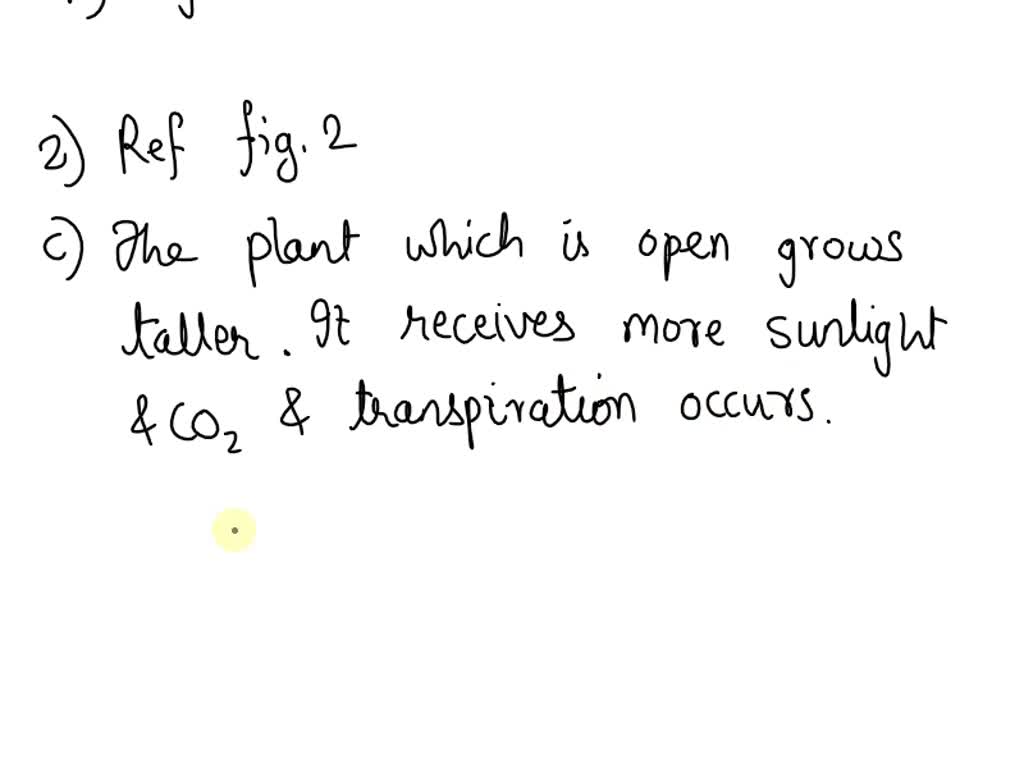 2) Ref fig. 2
c) The plant which is open grows
taller. It receives more sunlight
& CO₂ & transpiration occurs.